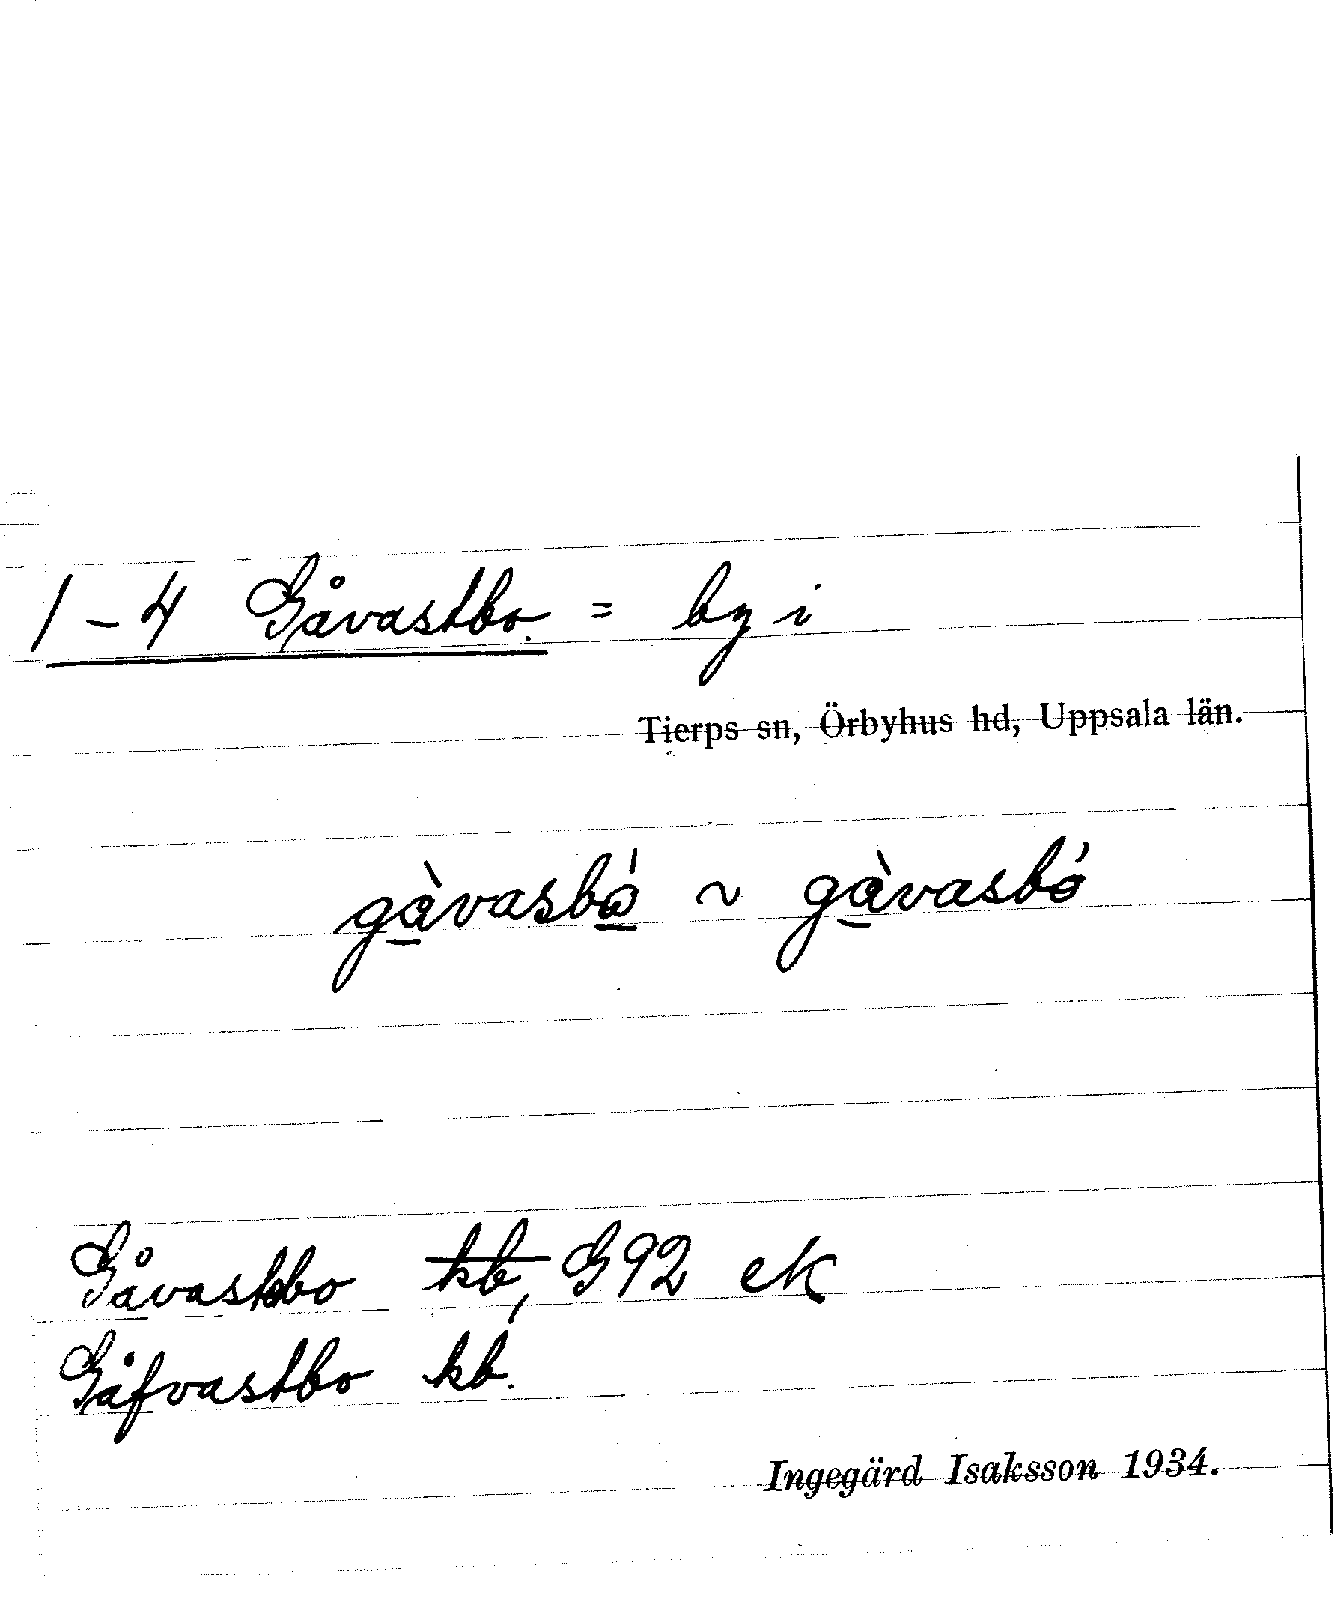 1 – 4 Gåvastbo. = by i
Tierps sn, Örbyhus hd, Uppsala län.
gàvasbó ~ gàvasbó
Gåvastbo kb, G92 ek
Gåfvastbo kb.
Ingegärd Isaksson 1934.